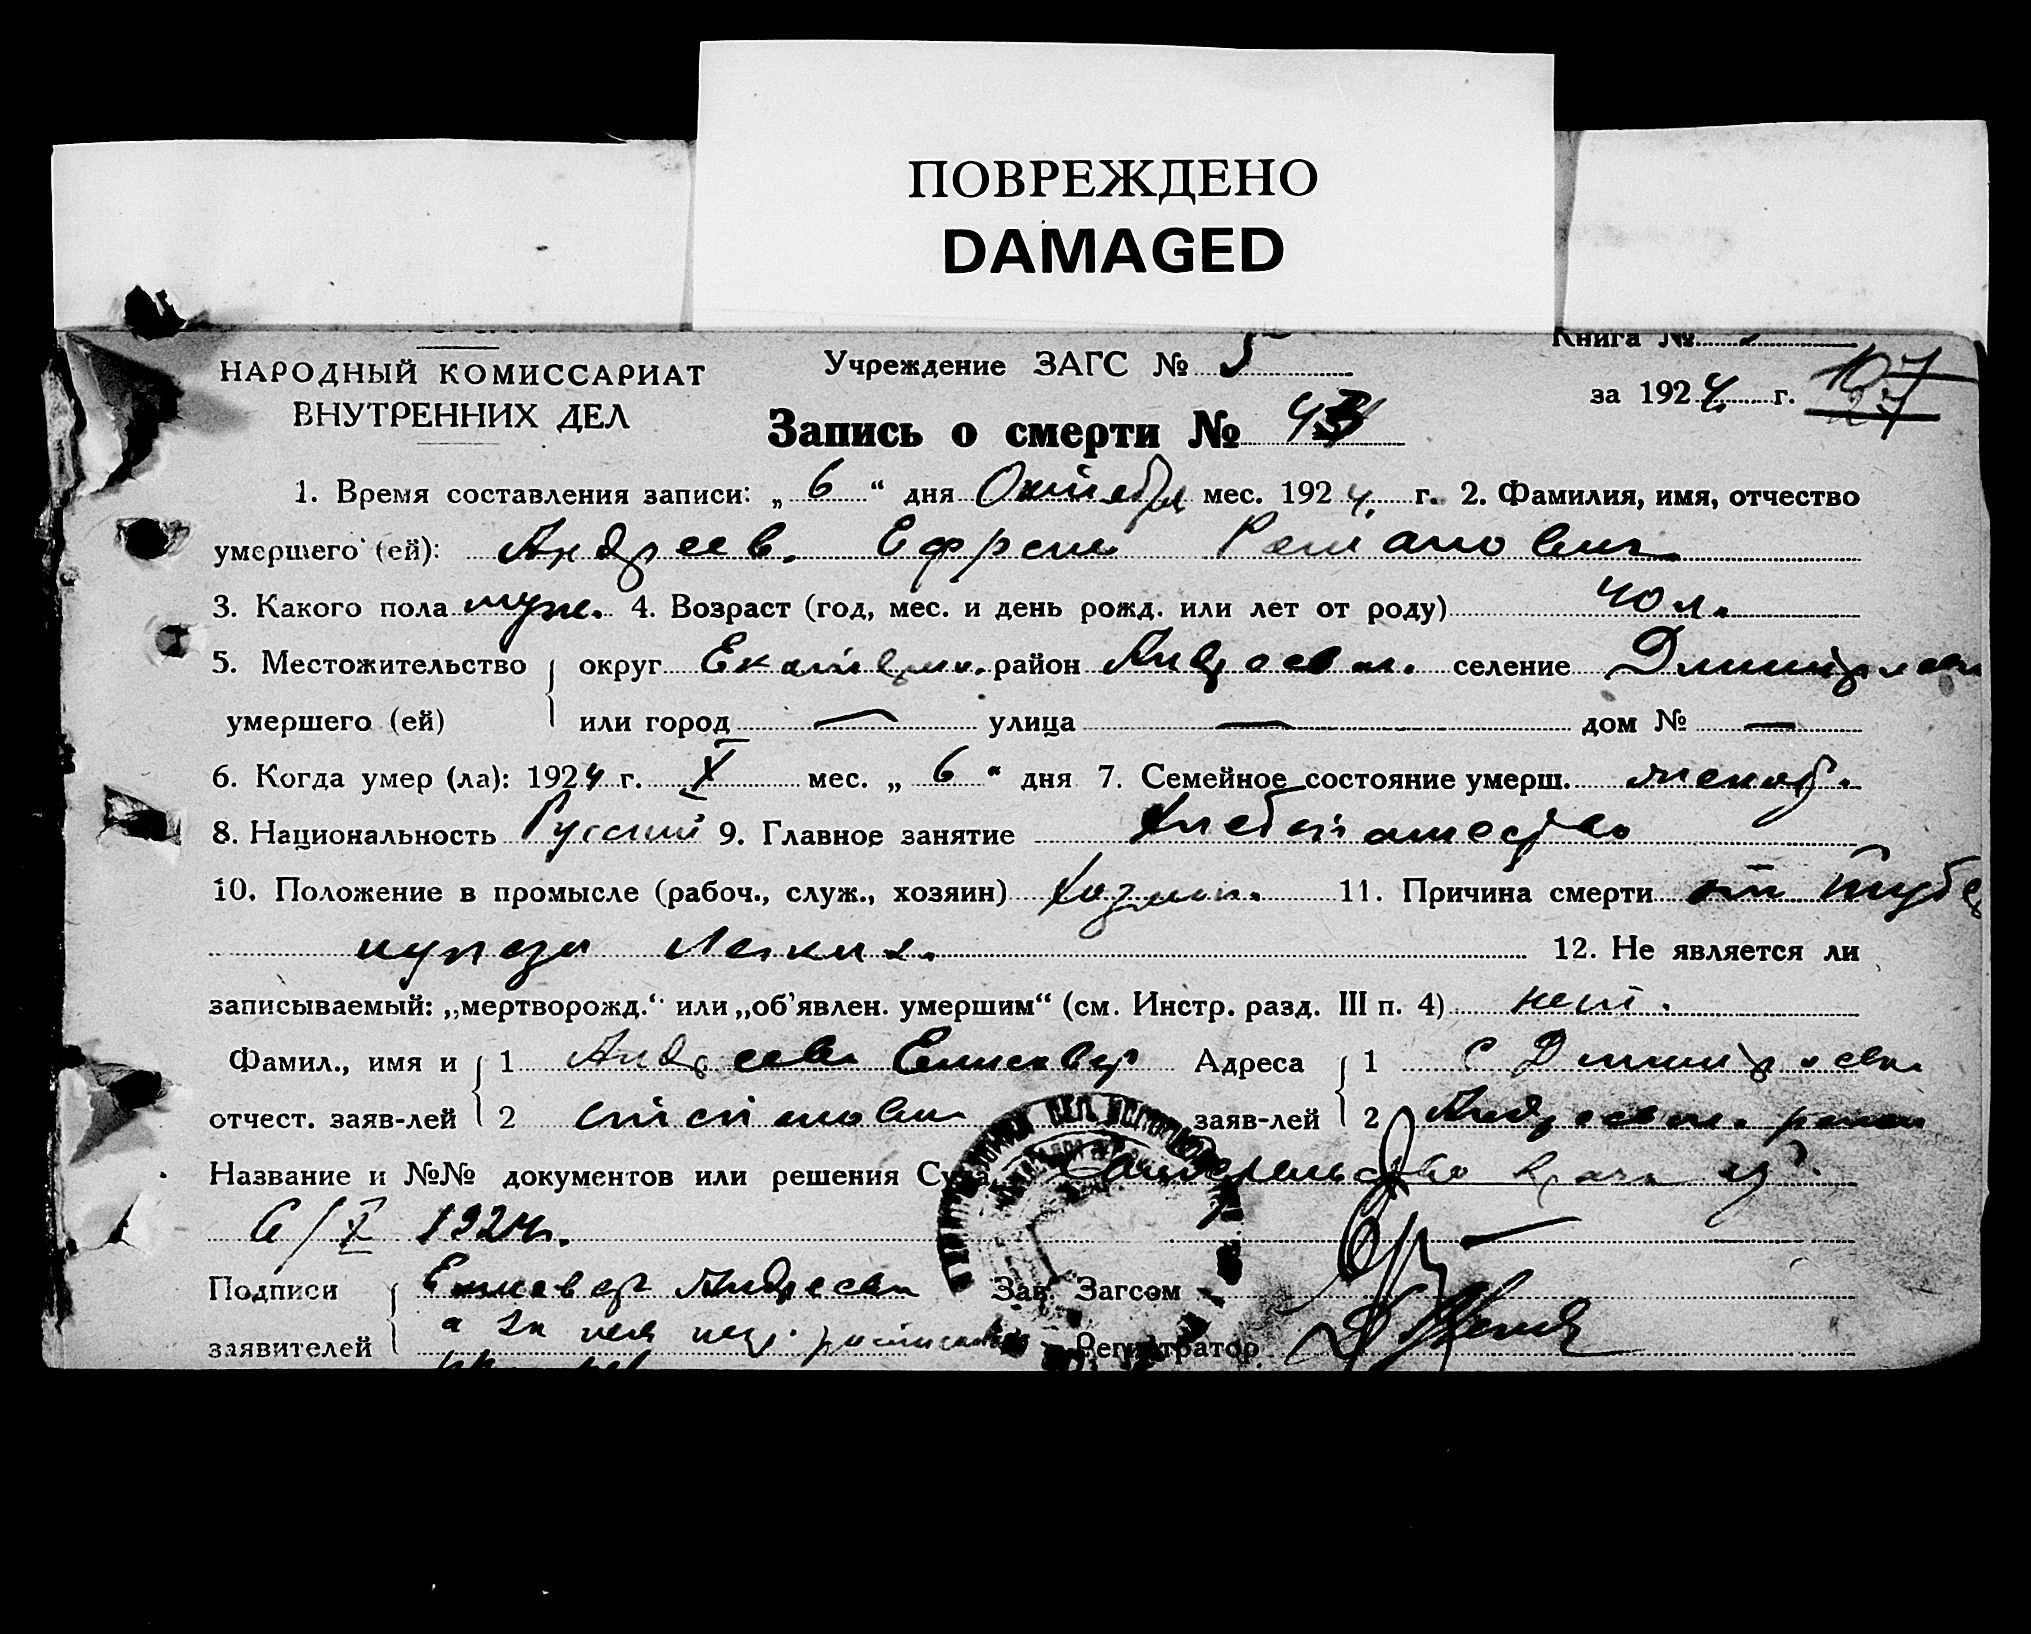 ПОВРЕЖДЕНО
DAMAGED
Книга №
НАРОДНЫЙ КОМИССАРИАТ
ВНУТРЕННИХ ДЕЛ
Учреждение ЗАГС № 5
за 1924 г. 27
Запись о смерти № 43
1. Время составления записи: „ 6 “ дня Октября мес. 1924 г. 2. Фамилия, имя, отчество
умершего (ей): Андреев Ефрем Романович
3. Какого пола муж. 4. Возраст (год, мес. и день рожд. или лет от роду) 40 л.
5. Местожительство округ Екатерин. район Андреевск. селение
умершего (ей) или город — улица — дом № —
6. Когда умер (ла): 1924 г. X мес. „ 6 “ дня 7. Семейное состояние умерш. женат.
8. Национальность Русский 9. Главное занятие Хлебопашество
10. Положение в промысле (рабоч., служ., хозяин) Хозяин. 11. Причина смерти от тубер
кулеза Легких.
12. Не является ли
записываемый: „мертворожд.“ или „об'явлен. умершим“ (см. Инстр. разд. III п. 4) нет.
Фамил., имя и 1 Андреев Адреса 1 с
отчест. заяв-лей 2 заяв-лей 2 Андреевск. район
Название и №№ документов или решения Суда
6/X 1924 г.
Подписи Андреев Зав. Загсом
заявителей а за негр. Регистратор